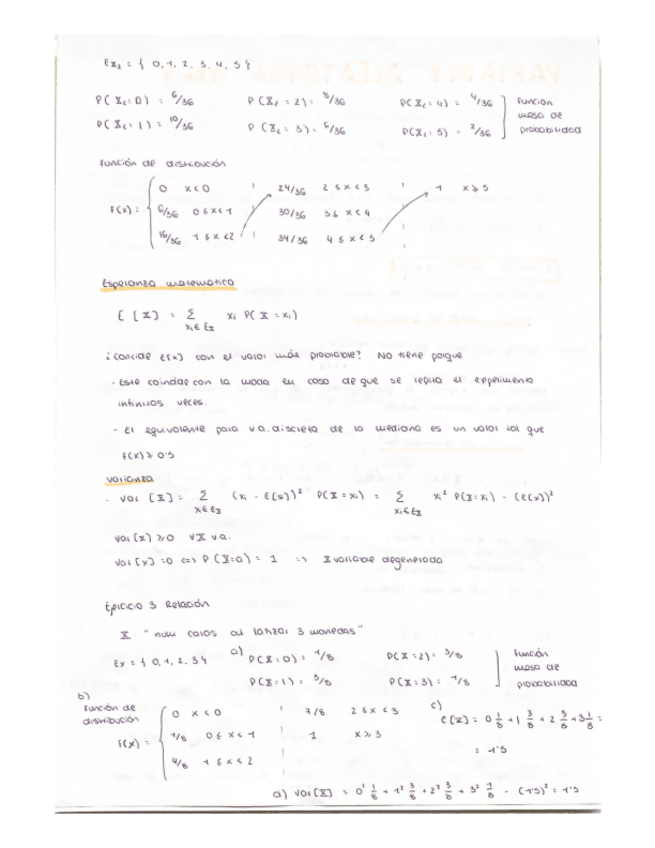 E𝕏₂ = { 0, 1, 2, 3, 4, 5 }
P(𝕏₂=0) = 6/36   P(𝕏₂=2) = 8/36   P(𝕏₂=4) = 4/36   Función
masa de
P(𝕏₂=1) = 10/36   P(𝕏₂=3) = 6/36   P(𝕏₂=5) = 2/36   probabilidad
Función de distribución
0   x<0   24/36   2≤x<3   1   x≥5
F(x) =   6/36   0≤x<1   30/36   3≤x<4
16/36   1≤x<2   34/36   4≤x<5
Esperanza matemática
E[𝕏] = Σ xᵢ P(𝕏=xᵢ)
xᵢ∈E𝕏
¿Concide E[x] con el valor más probable? No tiene porque
- Este coincide con la moda en caso de que se repita el experimento
infinitas veces.
- El equivalente para v.a. discreta de la mediana es un valor tal que
F(x) ≥ 0'5
Varianza
· Var[𝕏] = Σ (xᵢ - E(x))² P(𝕏=xᵢ) = Σ xᵢ² P(𝕏=xᵢ) - (E(x))²
xᵢ∈E𝕏   xᵢ∈E𝕏
Var[x] ≥0 ∀𝕏 v.a.
Var[x] =0 <=> P(𝕏=a) = 1 => 𝕏 variable degenerada
Ejercicio 3 Relación
𝕏 "num caras al lanzar 3 monedas"
Ex = { 0, 1, 2, 3 }   a) P(𝕏=0) = 1/8   P(𝕏=2) = 3/8   Función
masa de
P(𝕏=1) = 3/8   P(𝕏=3) = 1/8   probabilidad
b)
Función de
distribución   0   x<0   7/8   2≤x<3   c) E[𝕏] = 0 1/8 + 1 3/8 + 2 3/8 + 3 1/8 =
F(x) =   1/8   0≤x<1   1   x≥3
= 1'5
4/8   1≤x<2
d) Var[𝕏] = 0² 1/8 + 1² 3/8 + 2² 3/8 + 3² 1/8 - (1'5)² = 1'5